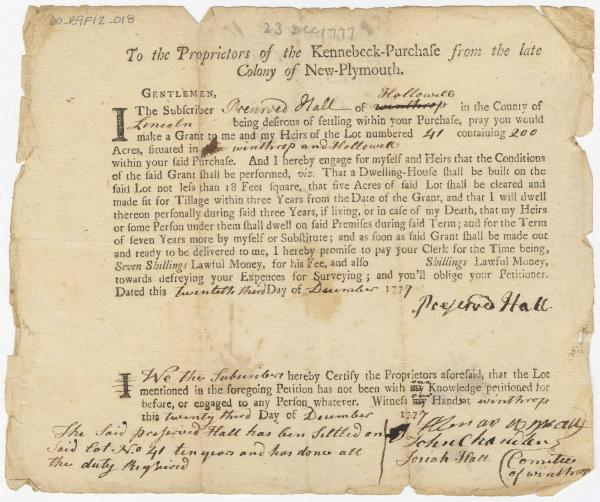 60-B9F12_018
23 Dec 1777
To the Proprietors of the Kennebeck-Purchase from the late
Colony of New-Plymouth.
GENTLEMEN,
The Subscriber Preserved Hall of winthrop Hollowell in the County of
Lincoln being desirous of settling within your Purchase, pray you would
make a Grant to me and my Heirs of the Lot numbered 41 containing 200
Acres, situated in winthrop and Hollowell
within your said Purchase. And I hereby engage for myself and Heirs that the Conditions
of the said Grant shall be performed, viz. That a Dwelling-House shall be built on the
said Lot not less than 18 Feet square, that five Acres of said Lot shall be cleared and
made fit for Tillage within three Years from the Date of the Grant, and that I will dwell
thereon personally during said three Years, if living, or in case of my Death, that my Heirs
or some Person under them shall dwell on said Premises during said Term; and for the Term
of seven Years more by myself or Substitute; and as soon as said Grant shall be made out
and ready to be delivered to me, I hereby promise to pay your Clerk for the Time being,
Seven Shillings Lawful Money, for his Fee, and also Shillings Lawful Money,
towards defreying your Expences for Surveying; and you'll oblige your Petitioner.
Dated this twenteth third Day of December 1777
Preserved Hall
I We the Subscribers hereby Certify the Proprietors aforesaid, that the Lot
mentioned in the foregoing Petition has not been with my our Knowledge petitioned for
before, or engaged to any Person whatever. Witness my our Hands at winthrop
this twenty third Day of December 1777
The Said preserved Hall has ben Settled on
Said Lot No 41 ten years and has done all
the duty Required
John Chandler
Josiah Hall
Comitee
of winthrop